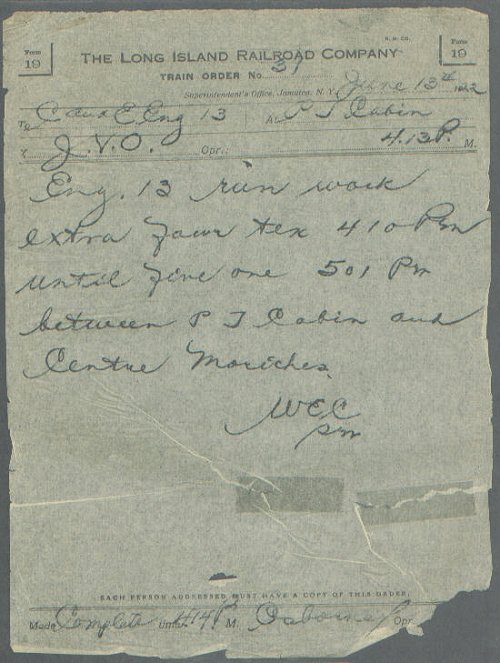 Form 19
THE LONG ISLAND RAILROAD COMPANY
Form 19
TRAIN ORDER No. 31
Superintendent's Office, Jamaica, N. Y. June 13th
To C and E Eng 13 At P T Cabin
X J.V.O. Opr.; 4.13 P. M.
Eng. 13 run work
extra four ten 410 Pm
until five one 501 Pm
between P T Cabin and
Centre Moriches.
WEC
pm
EACH PERSON ADDRESSED MUST HAVE A COPY OF THIS ORDER.
Made Complete Time 414 P M. Osborne Opr.